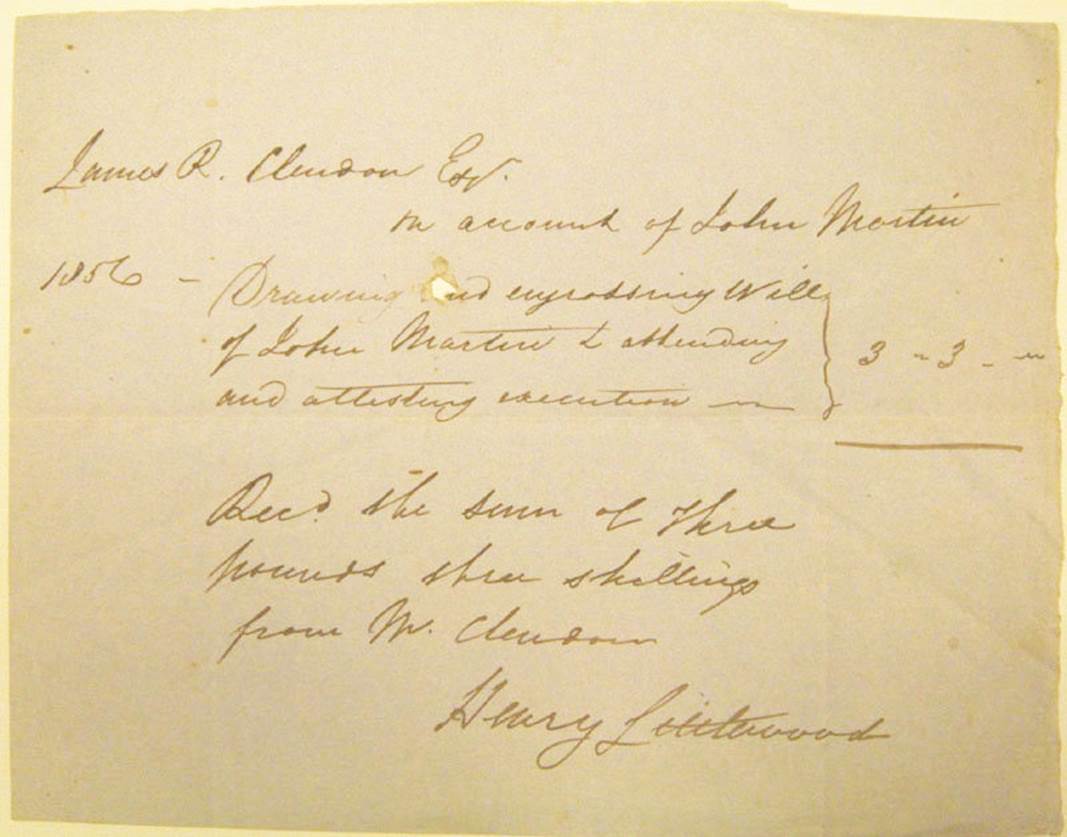 James R. Clendon Esqr.
on account of John Martin
1856 - Drawing and engrossing Will
of John Martin & attending
and attesting execution — 3 - 3 - "
Recd. the sum of three
pounds three shillings
from Mr. Clendon
Henry Littlewood